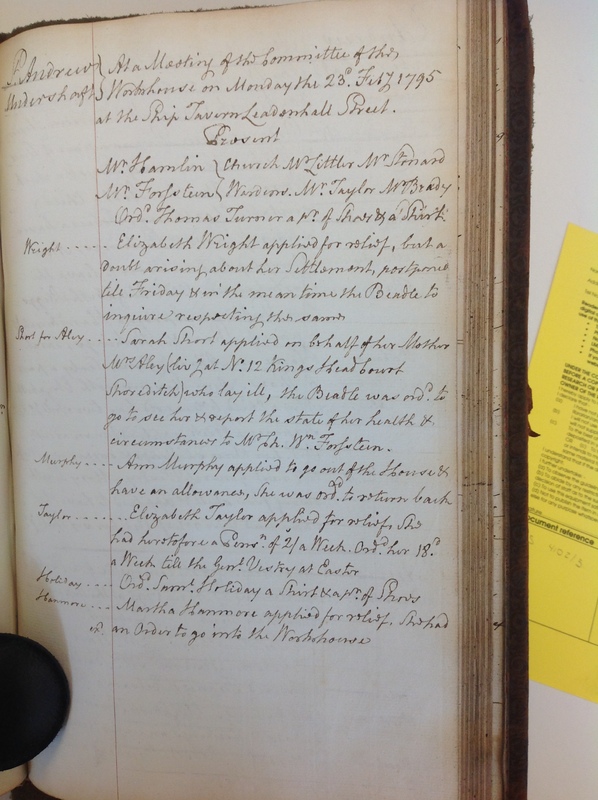 St. Andrew
Undershaft
At a Meeting of the Committee of the
Workhouse on Monday the 23d. Feby 1795
at the Ship Tavern Leadenhall Street.
Present
Mr. Hamlin } Church Mr Littler Mr Stonard
Mr. Forssteen } Wardens. Mr. Taylor Mr Brady
Ord. Thomas Turner a pr. of Shoes & a Shirt
Wright ..... Elizabeth Wright applied for relief, but a
doubt arising about her Settlement, postponed
till Friday & in the mean time the Beadle to
inquire respecting the same
Short for Aley .... Sarah Short applied on behalf of her Mother
Mrs Aley (livg at No. 12 Kings Head Court
Shoreditch) who lay ill, the Beadle was ord. to
go to see her & report the state of her health &
circumstances to Mr Ch. Wn. Forssteen.
Murphy .... Ann Murphy applied to go out of the House &
have an allowance, She was ordd. to return back
Taylor ....... Elizabeth Taylor applied for relief, She
had heretofore a Pensn. of 2/ a Week. Ord. her 18d.
a Week till the Genl. Vestry at Easter
Holiday .... Ord. Saml. Holiday a Shirt & a pr. of Shoes
Hanmore ... Martha Hanmore applied for relief, She had
an Order to go into the Workhouse
UNDER THE CO
BEFORE A CO
RESEARCH O
OWNER OF THE
ocument reference